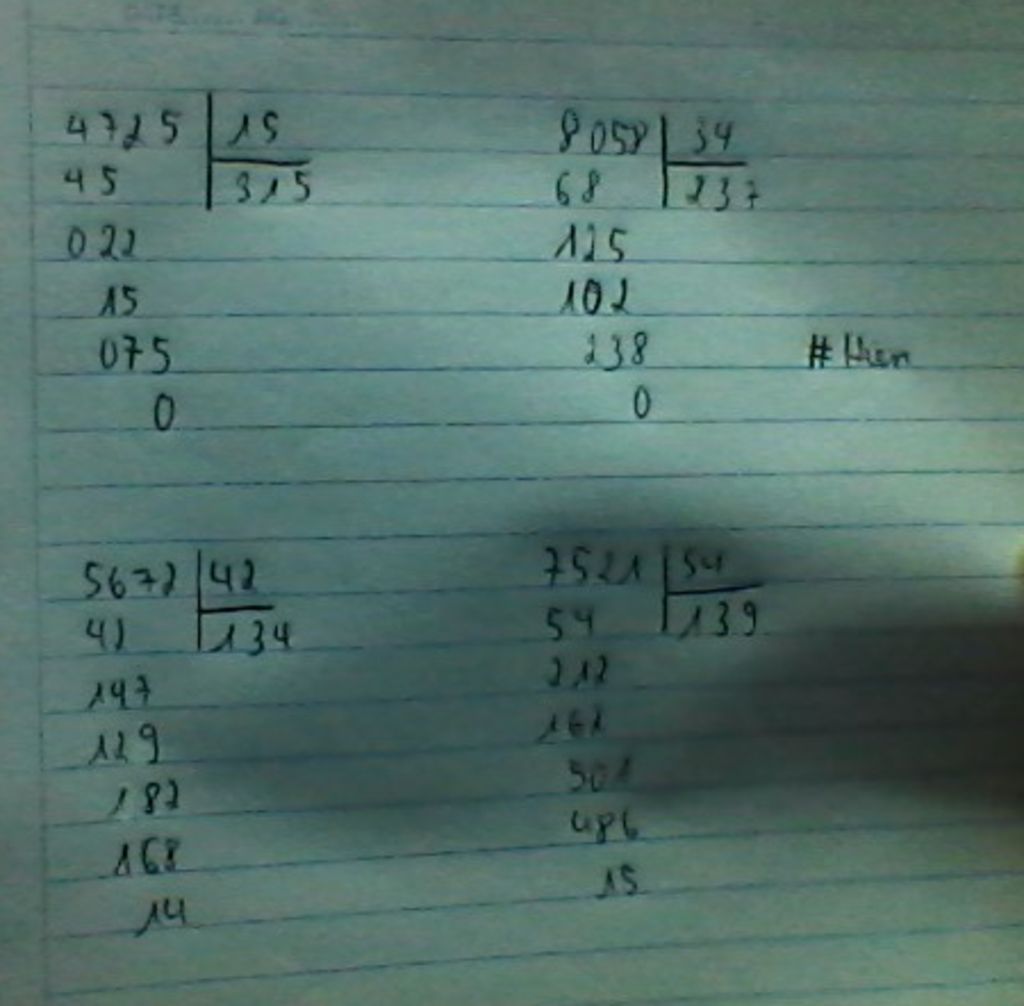 4725 | 15
45 | 315
022
15
075
0
8058 | 34
68 | 237
125
102
238
0
# Hien
5672 | 42
42 | 134
147
129
182
168
14
7521 | 54
54 | 139
212
162
501
486
15